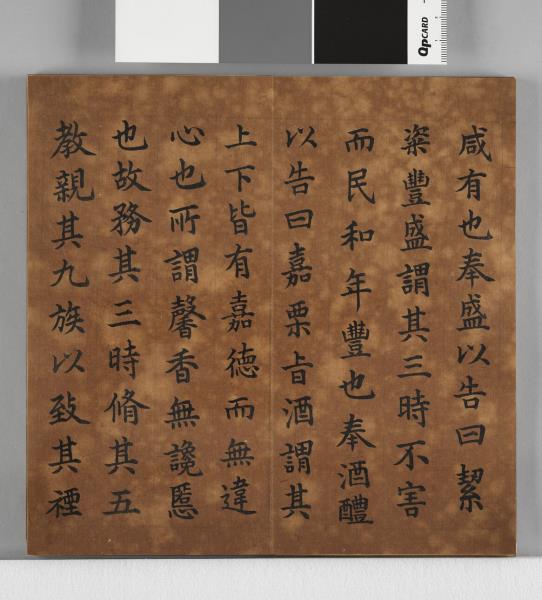 咸有也奉盛以告曰絜
粢豐盛謂其三時不害
而民和年豐也奉酒醴
以告曰嘉栗旨酒謂其
上下皆有嘉徳而無違
心也所謂馨香無讒慝
也故務其三時脩其五
教親其九族以致其禋
QPCARD